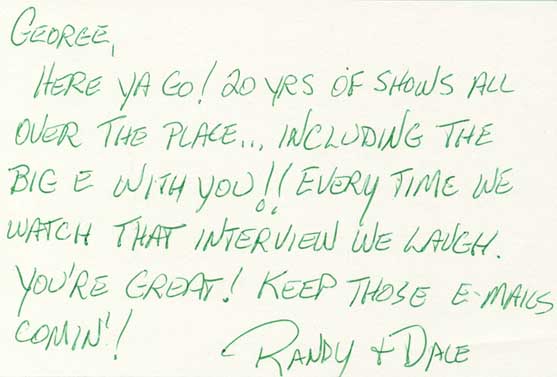 GEORGE,
HERE YA GO! 20 YRS OF SHOWS ALL
OVER THE PLACE... INCLUDING THE
BIG E WITH YOU!! EVERY TIME WE
WATCH THAT INTERVIEW WE LAUGH.
YOU'RE GREAT! KEEP THOSE E-MAILS
COMIN'!
RANDY + DALE